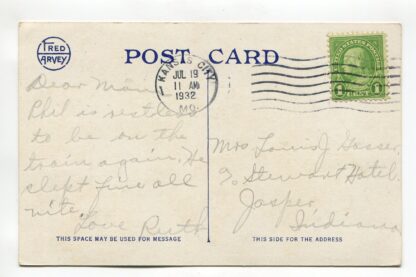 FRED
HARVEY
POST CARD
KANSAS CITY
1
JUL 19
11 AM
1932
MO.
UNITED STATES POSTAGE
1 CENT 1
Dear Mam
Phil is restless
to be on the
train again. He
slept fine all
nite.
Love Ruth
Mrs Louis J Gosser
% Stewart Hotel.
Jasper
Indiana
THIS SPACE MAY BE USED FOR MESSAGE
THIS SIDE FOR THE ADDRESS